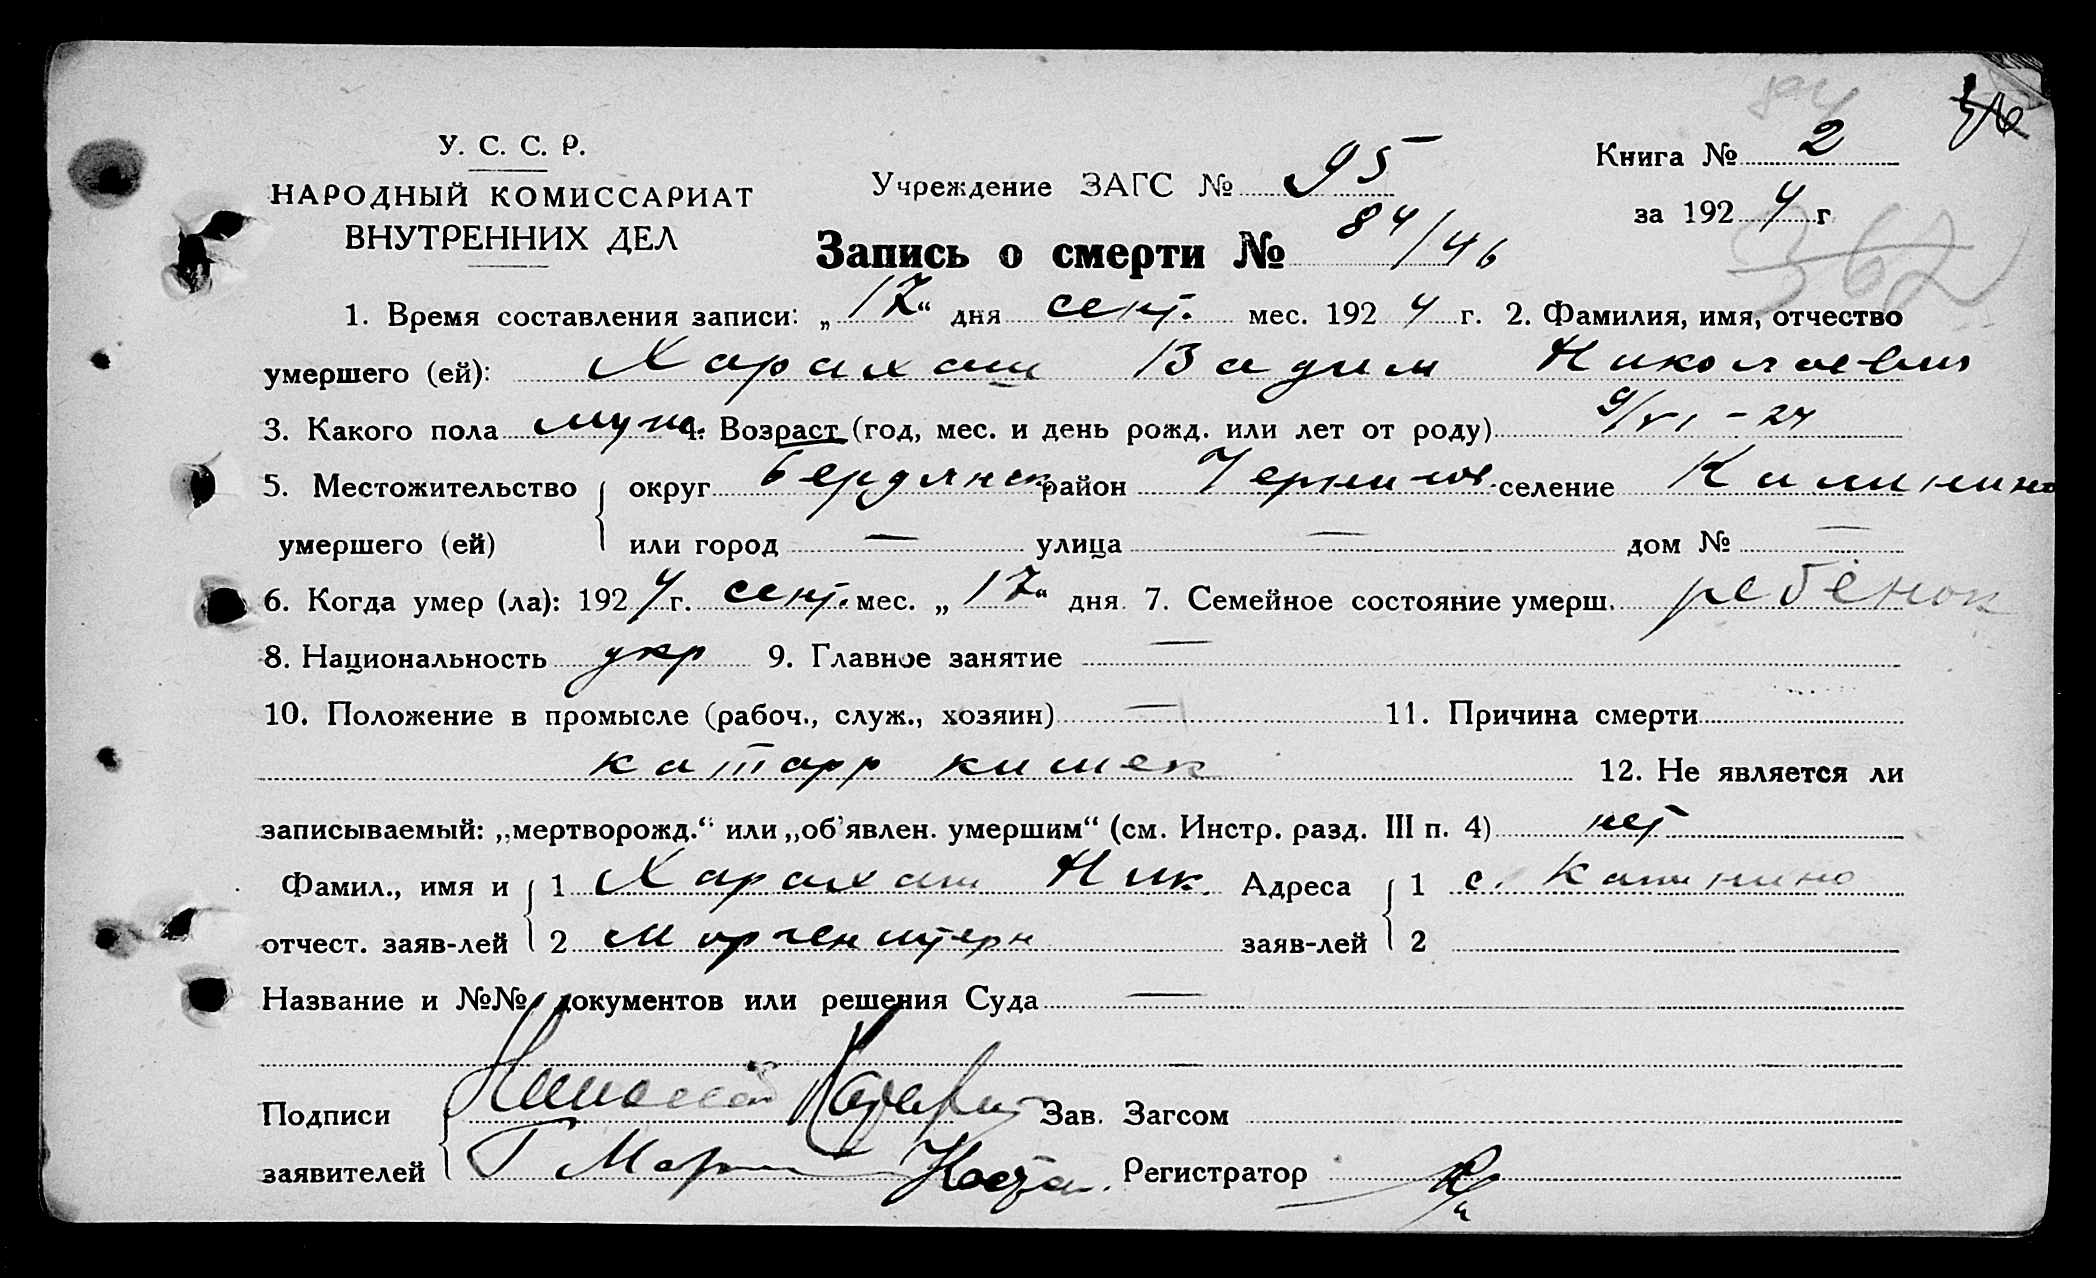 У. С. С. Р.
НАРОДНЫЙ КОМИССАРИАТ
ВНУТРЕННИХ ДЕЛ
Учреждение ЗАГС № 95
Книга № 2
за 1924 г
362
Запись о смерти № 84/46
1. Время составления записи: „17“ дня сент. мес. 1924 г. 2. Фамилия, имя, отчество
умершего (ей): Харахаш Вадим Николаевич
3. Какого пола муж. 4. Возраст (год, мес. и день рожд. или лет от роду) 9/VI-24
5. Местожительство округ Бердянск район селение Калинино
умершего (ей) или город — улица — дом № —
6. Когда умер (ла): 1924 г. сент. мес. „17“ дня. 7. Семейное состояние умерш. ребёнок
8. Национальность укр 9. Главное занятие —
10. Положение в промысле (рабоч., служ., хозяин) — 11. Причина смерти
катарр кишек 12. Не является ли
записываемый: „мертворожд.“ или „об'явлен. умершим“ (см. Инстр. разд. III п. 4) нет
Фамил., имя и 1 Харахаш Ник. Адреса 1 с. Калинино
отчест. заяв-лей 2 Моргенштерн заяв-лей 2
Название и №№ документов или решения Суда —
Подписи Николай Зав. Загсом
заявителей Регистратор